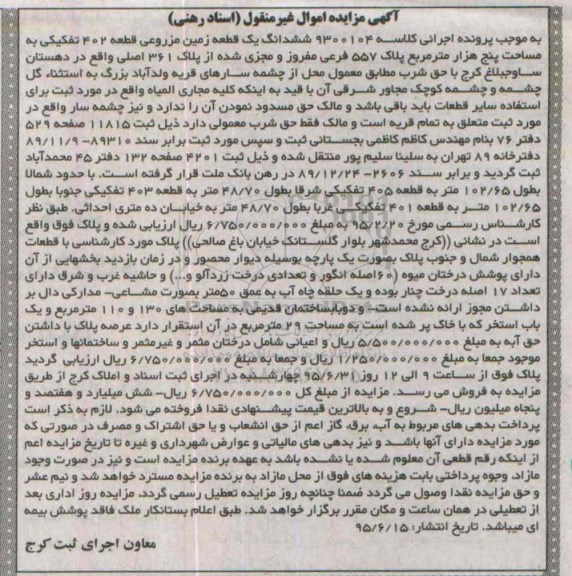 آگهی مزایده اموال غیرمنقول (اسناد رهنی)
به موجب پرونده اجرائی کلاسه ۹۳۰۰۱۰۴ ششدانگ یک قطعه زمین مزروعی قطعه ۴۰۲ تفکیکی به
مساحت پنج هزار مترمربع پلاک ۵۵۷ فرعی مفروز و مجزی شده از پلاک ۳۶۱ اصلی واقع در دهستان
ساوجبلاغ کرج با حق شرب مطابق معمول محل از چشمه سارهای قریه ولدآباد بزرگ به استثناء گل
چشمه و چشمه کوچک مجاور شرقی آن با قید به اینکه کلیه مجاری المیاه واقع در مورد ثبت برای
استفاده سایر قطعات باید باقی باشد و مالک حق مسدود نمودن آن را ندارد و نیز چشمه سار واقع در
مورد ثبت متعلق به تمام قریه است و مالک فقط حق شرب معمولی دارد ذیل ثبت ۱۱۸۱۵ صفحه ۵۲۹
دفتر ۷۶ بنام مهندس کاظم کاظمی بجستانی ثبت و سپس مورد ثبت برابر سند ۸۹۳۱۰-۸۹/۱۱/۹
دفترخانه ۸۹ تهران به سلینا سلیم پور منتقل شده و ذیل ثبت ۴۲۰۱ صفحه ۱۳۲ دفتر ۴۵ محمدآباد
ثبت گردید و برابر سند ۲۶۰۶-۸۹/۱۲/۲۴ در رهن بانک ملت قرار گرفته است. با حدود شمالا
بطول ۱۰۲/۶۵ متر به قطعه ۴۰۵ تفکیکی شرقا بطول ۴۸/۷۰ متر به قطعه ۴۰۳ تفکیکی جنوبا بطول
۱۰۲/۶۵ متر به قطعه ۴۰۱ تفکیکی غربا بطول ۴۸/۷۰ متر به خیابان ده متری احداثی. طبق نظر
کارشناس رسمی مورخ ۹۵/۲/۲۰ به مبلغ ۶/۷۵۰/۰۰۰/۰۰۰ ریال ارزیابی شده و پلاک فوق واقع
است در نشانی ((کرج محمدشهر بلوار گلستانک خیابان باغ صالحی)) پلاک مورد کارشناسی با قطعات
همجوار شمال و جنوب پلاک بصورت یک پارچه بوسیله دیوار محصور و در زمان بازدید بخشهایی از آن
دارای پوشش درختان میوه (۶۰اصله انگور و تعدادی درخت زردآلو و...) و حاشیه غرب و شرق دارای
تعداد ۱۷ اصله درخت چنار بوده و یک حلقه چاه آب به عمق ۵۰متر بصورت مشاعی- مدارکی دال بر
داشتن مجوز ارائه نشده است- و دوبابساختمان قدیمی به مساحت های ۱۳۰ و ۱۱۰ مترمربع و یک
باب استخر که با خاک پر شده است به مساحت ۲۹ مترمربع در آن استقرار دارد عرصه پلاک با داشتن
حق آبه به مبلغ ۵/۵۰۰/۰۰۰/۰۰۰ ریال و اعیانی شامل درختان مثمر و غیرمثمر و ساختمانها و استخر
موجود جمعا به مبلغ ۱/۲۵۰/۰۰۰/۰۰۰ ریال و جمعا به مبلغ ۶/۷۵۰/۰۰۰/۰۰۰ ریال ارزیابی گردید
پلاک فوق از ساعت ۹ الی ۱۲ روز ۹۵/۶/۳۱ چهارشنبه در اجرای ثبت اسناد و املاک کرج از طریق
مزایده به فروش می رسد. مزایده از مبلغ کل ۶/۷۵۰/۰۰۰/۰۰۰ ریال- شش میلیارد و هفتصد و
پنجاه میلیون ریال- شروع و به بالاترین قیمت پیشنهادی نقدا فروخته می شود. لازم به ذکر است
پرداخت بدهی های مربوط به آب، برق، گاز اعم از حق انشعاب و یا حق اشتراک و مصرف در صورتی که
مورد مزایده دارای آنها باشد و نیز بدهی های مالیاتی و عوارض شهرداری و غیره تا تاریخ مزایده اعم
از اینکه رقم قطعی آن معلوم شده یا نشده باشد به عهده برنده مزایده است و نیز در صورت وجود
مازاد، وجوه پرداختی بابت هزینه های فوق از محل مازاد به برنده مزایده مسترد خواهد شد و نیم عشر
و حق مزایده نقدا وصول می گردد ضمنا چنانچه روز مزایده تعطیل رسمی گردد، مزایده روز اداری بعد
از تعطیلی در همان ساعت و مکان مقرر برگزار خواهد شد. طبق اعلام بستانکار ملک فاقد پوشش بیمه
ای میباشد. تاریخ انتشار: ۹۵/۶/۱۵
معاون اجرای ثبت کرج